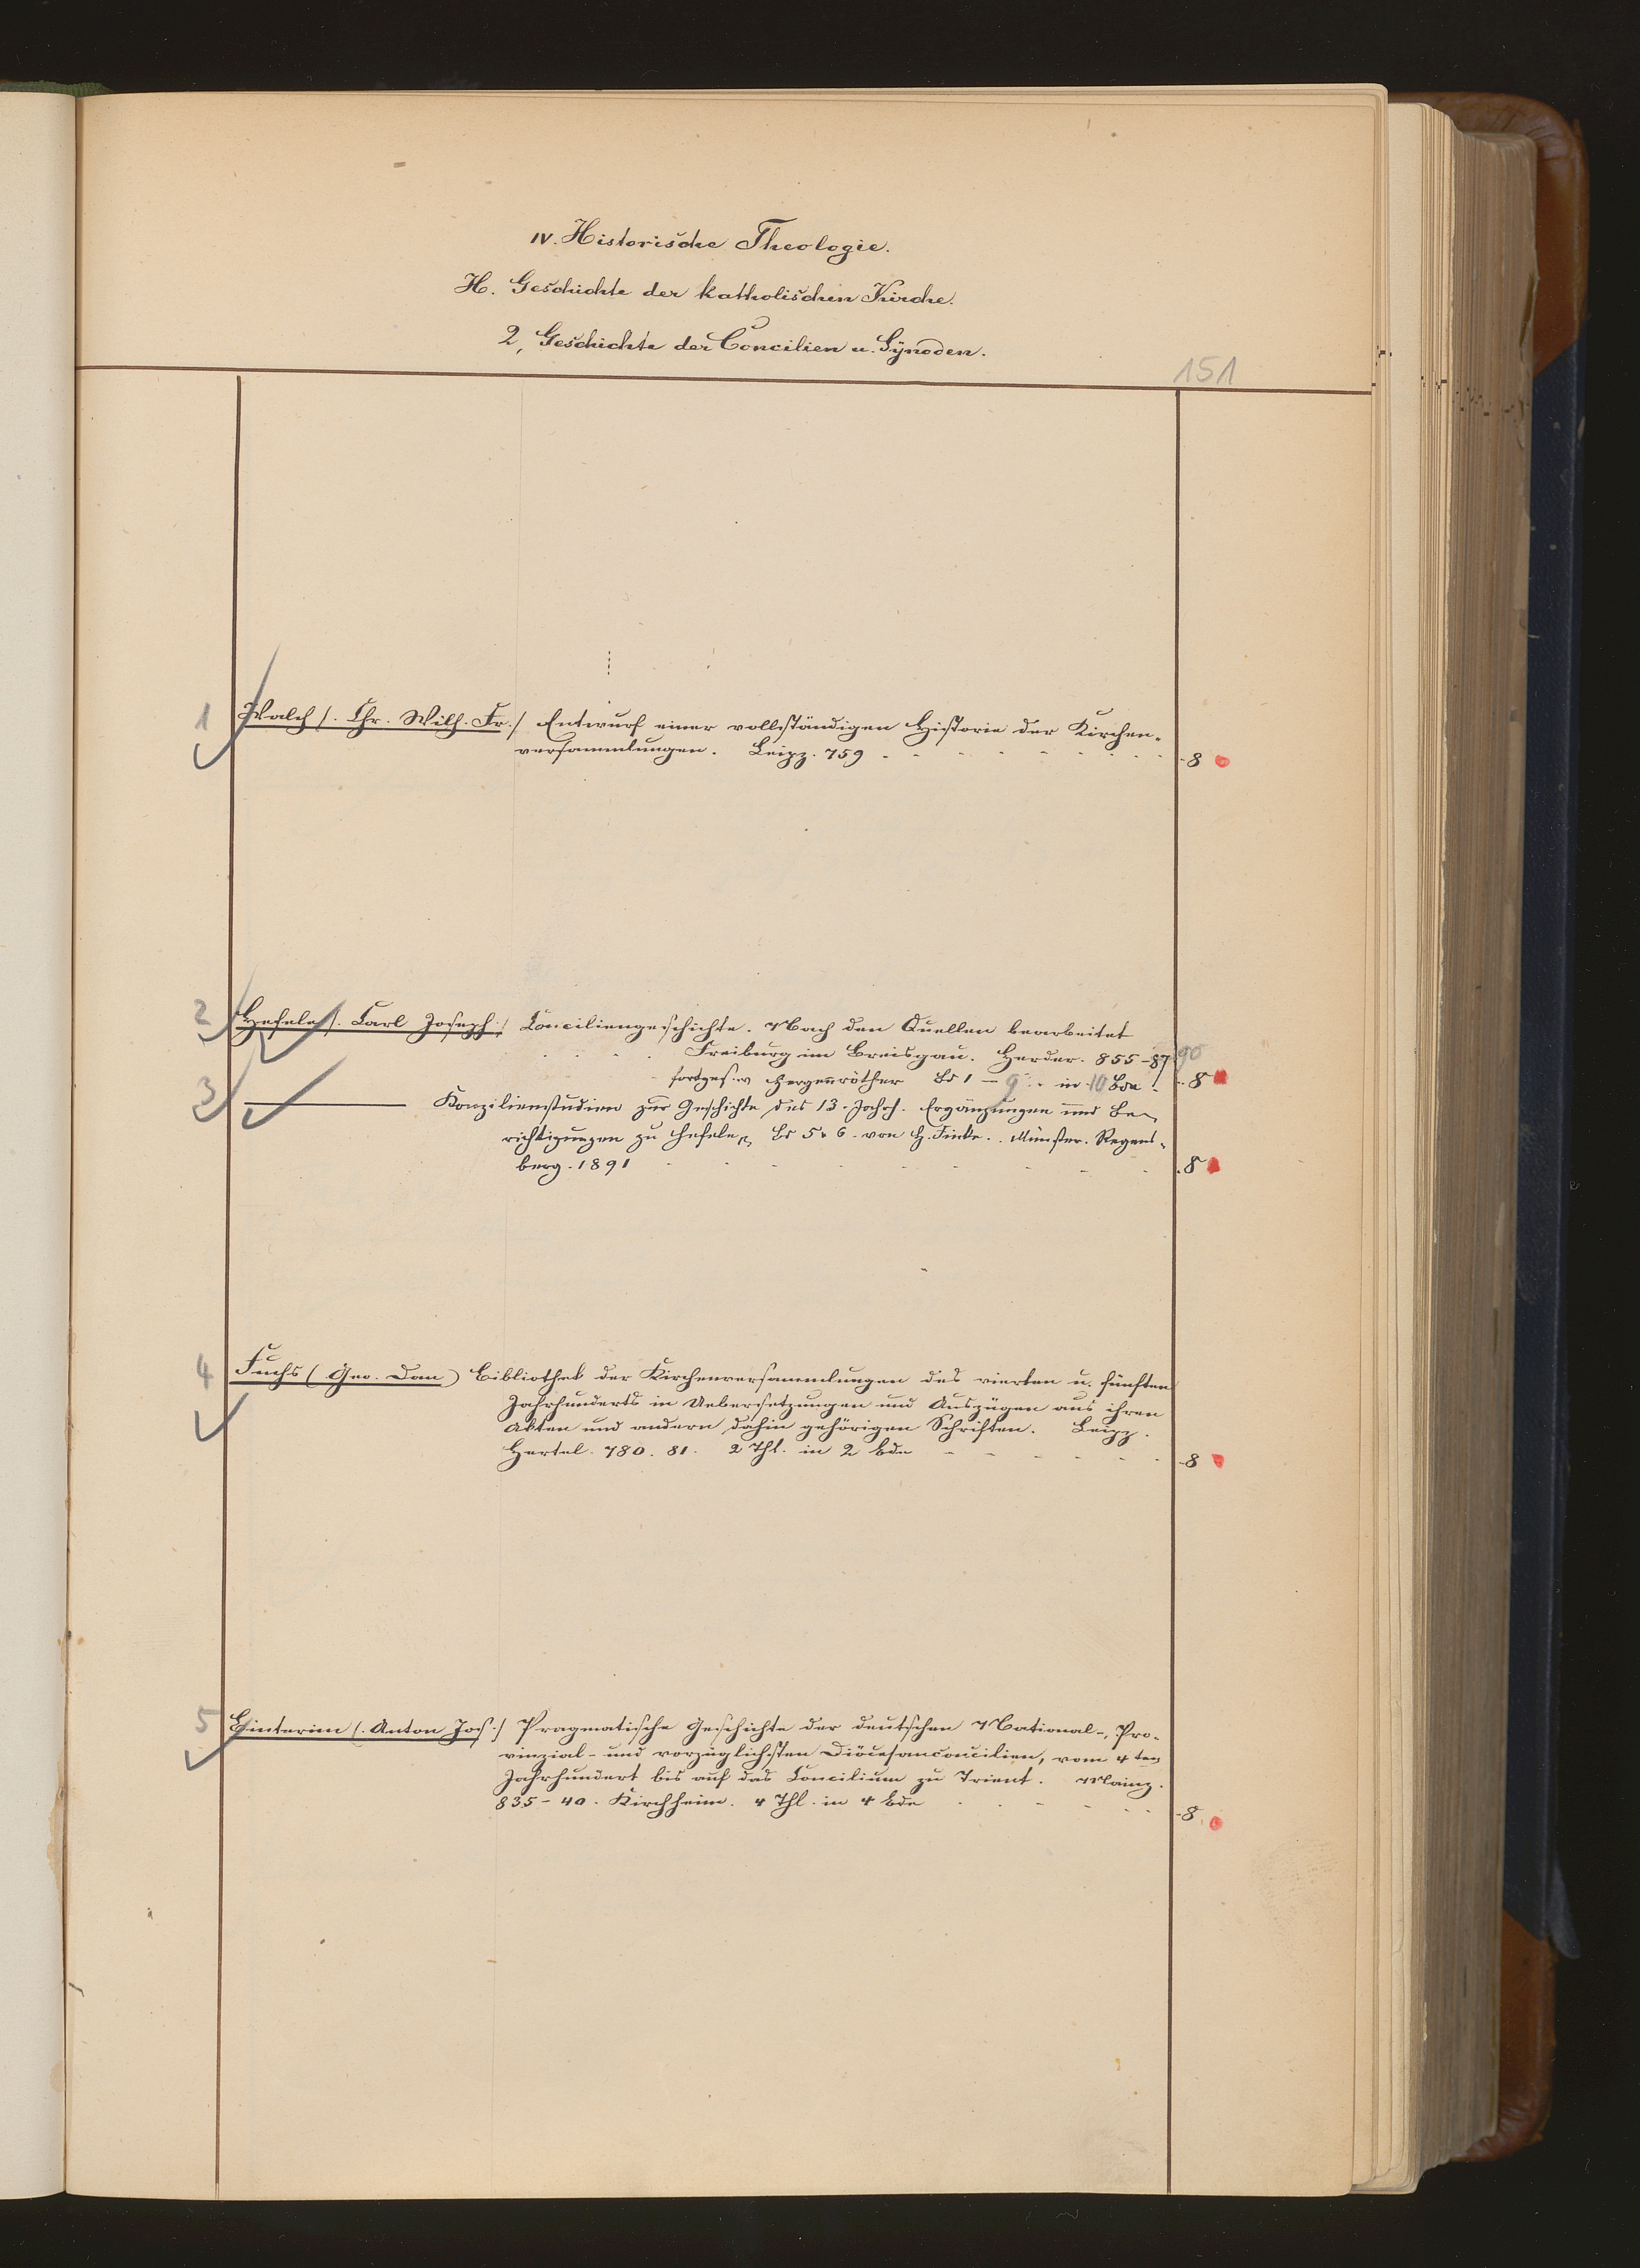 IV. Historische Theologie.
H. Geschichte der katholischen Kirche.
2, Geschichte der Concilien u. Synoden.
151
1 Walch /. Chr. Wilh. Fr./ Entwurf einer vollständigen Historie der Kirchen-
versammlungen. Leipz. 759 - 8
2 Hefele /. Carl Joseph./ Conciliengeschichte. Nach den Quellen bearbeitet
Freiburg im Breisgau. Herder. 855-87 90
fortges. v Hergenröther Bd 1 - 9 in 10 Bde - 8
3 ——— Konzilienstudien zur Geschichte des 13. Jahrh. Ergänzungen und Be-
richtigungen zu Hefele, Bd 5 & 6 von H. Finke. Münster. Regens-
berg. 1891 - 8
4 Fuchs (Geo. Dan) Bibliothek der Kirchenversammlungen des vierten u. fünften
Jahrhunderts in Uebersetzungen und Auszügen aus ihren
Akten und andern dahin gehörigen Schriften. Leipz.
Hertel. 780. 81. 2 Thl. in 2 Bde - 8
5 Binterim (. Anton Jos./ Pragmatische Geschichte der deutschen National-, Pro-
vinzial- und vorzüglichsten Diöcesanconcilien, vom 4ten
Jahrhundert bis auf das Concilium zu Trient. Mainz.
835-40. Kirchheim. 4 Thl. in 4 Bde - 8